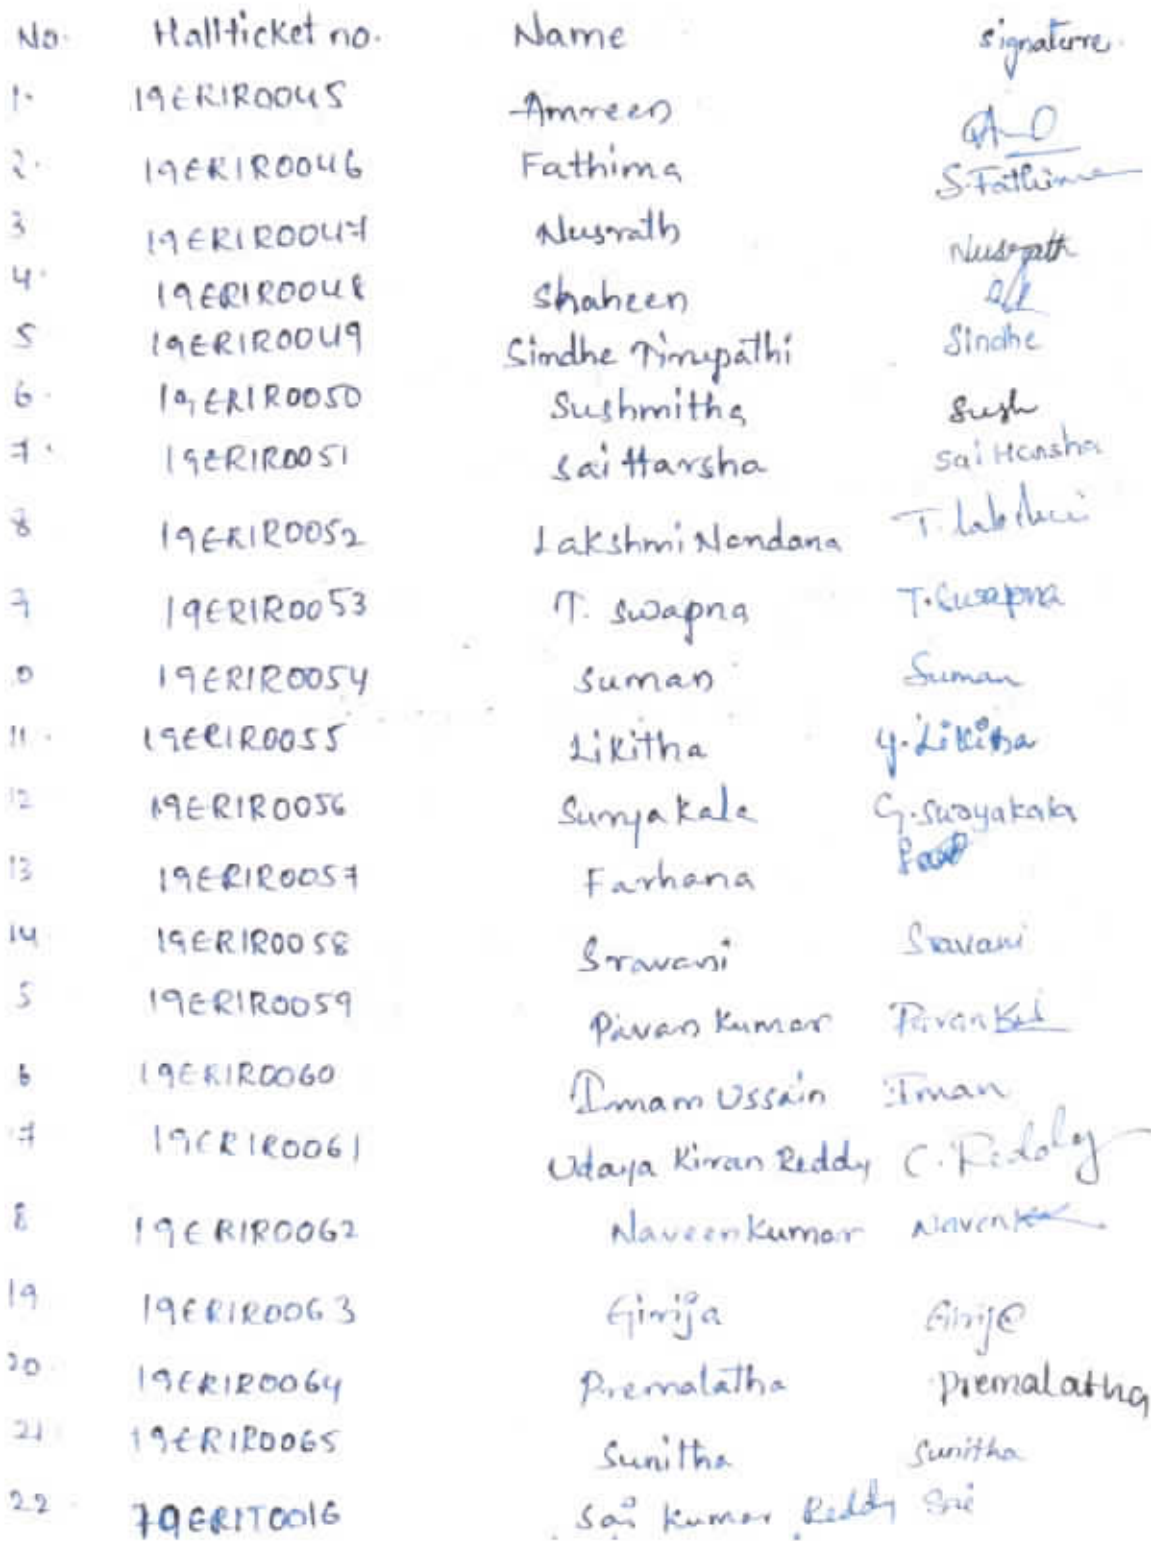 No. Hallticket no. Name Signature.
1. 19ERIR0045 Amreen
2. 19ERIR0046 Fathima S.Fathima
3 19ERIR0047 Nusrath Nusrath
4. 19ERIR0048 Shaheen
5 19ERIR0049 Sindhe Tirupathi Sindhe
6. 19ERIR0050 Sushmitha Sush
7. 19ERIR0051 Sai Harsha Sai Harsha
8 19ERIR0052 Lakshmi Nandana T. Lakshmi
9 19ERIR0053 T. Swapna T. Swapna
0 19ERIR0054 Suman Suman
11. 19ERIR0055 Likitha Y. Likitha
12 19ERIR0056 Surya Kala G. Suryakala
13 19ERIR0057 Farhana
14 19ERIR0058 Sravani Sravani
5 19ERIR0059 Pavan Kumar Pavan
6 19ERIR0060 Imam Ussain Iman
7 19ERIR0061 Udaya Kiran Reddy C. Reddy
8 19ERIR0062 Naveen Kumar Naven
19 19ERIR0063 Girija Girija
20. 19ERIR0064 Premalatha Premalatha
21 19ERIR0065 Sunitha Sunitha
22 19ERIT0016 Sai Kumar Reddy Sai